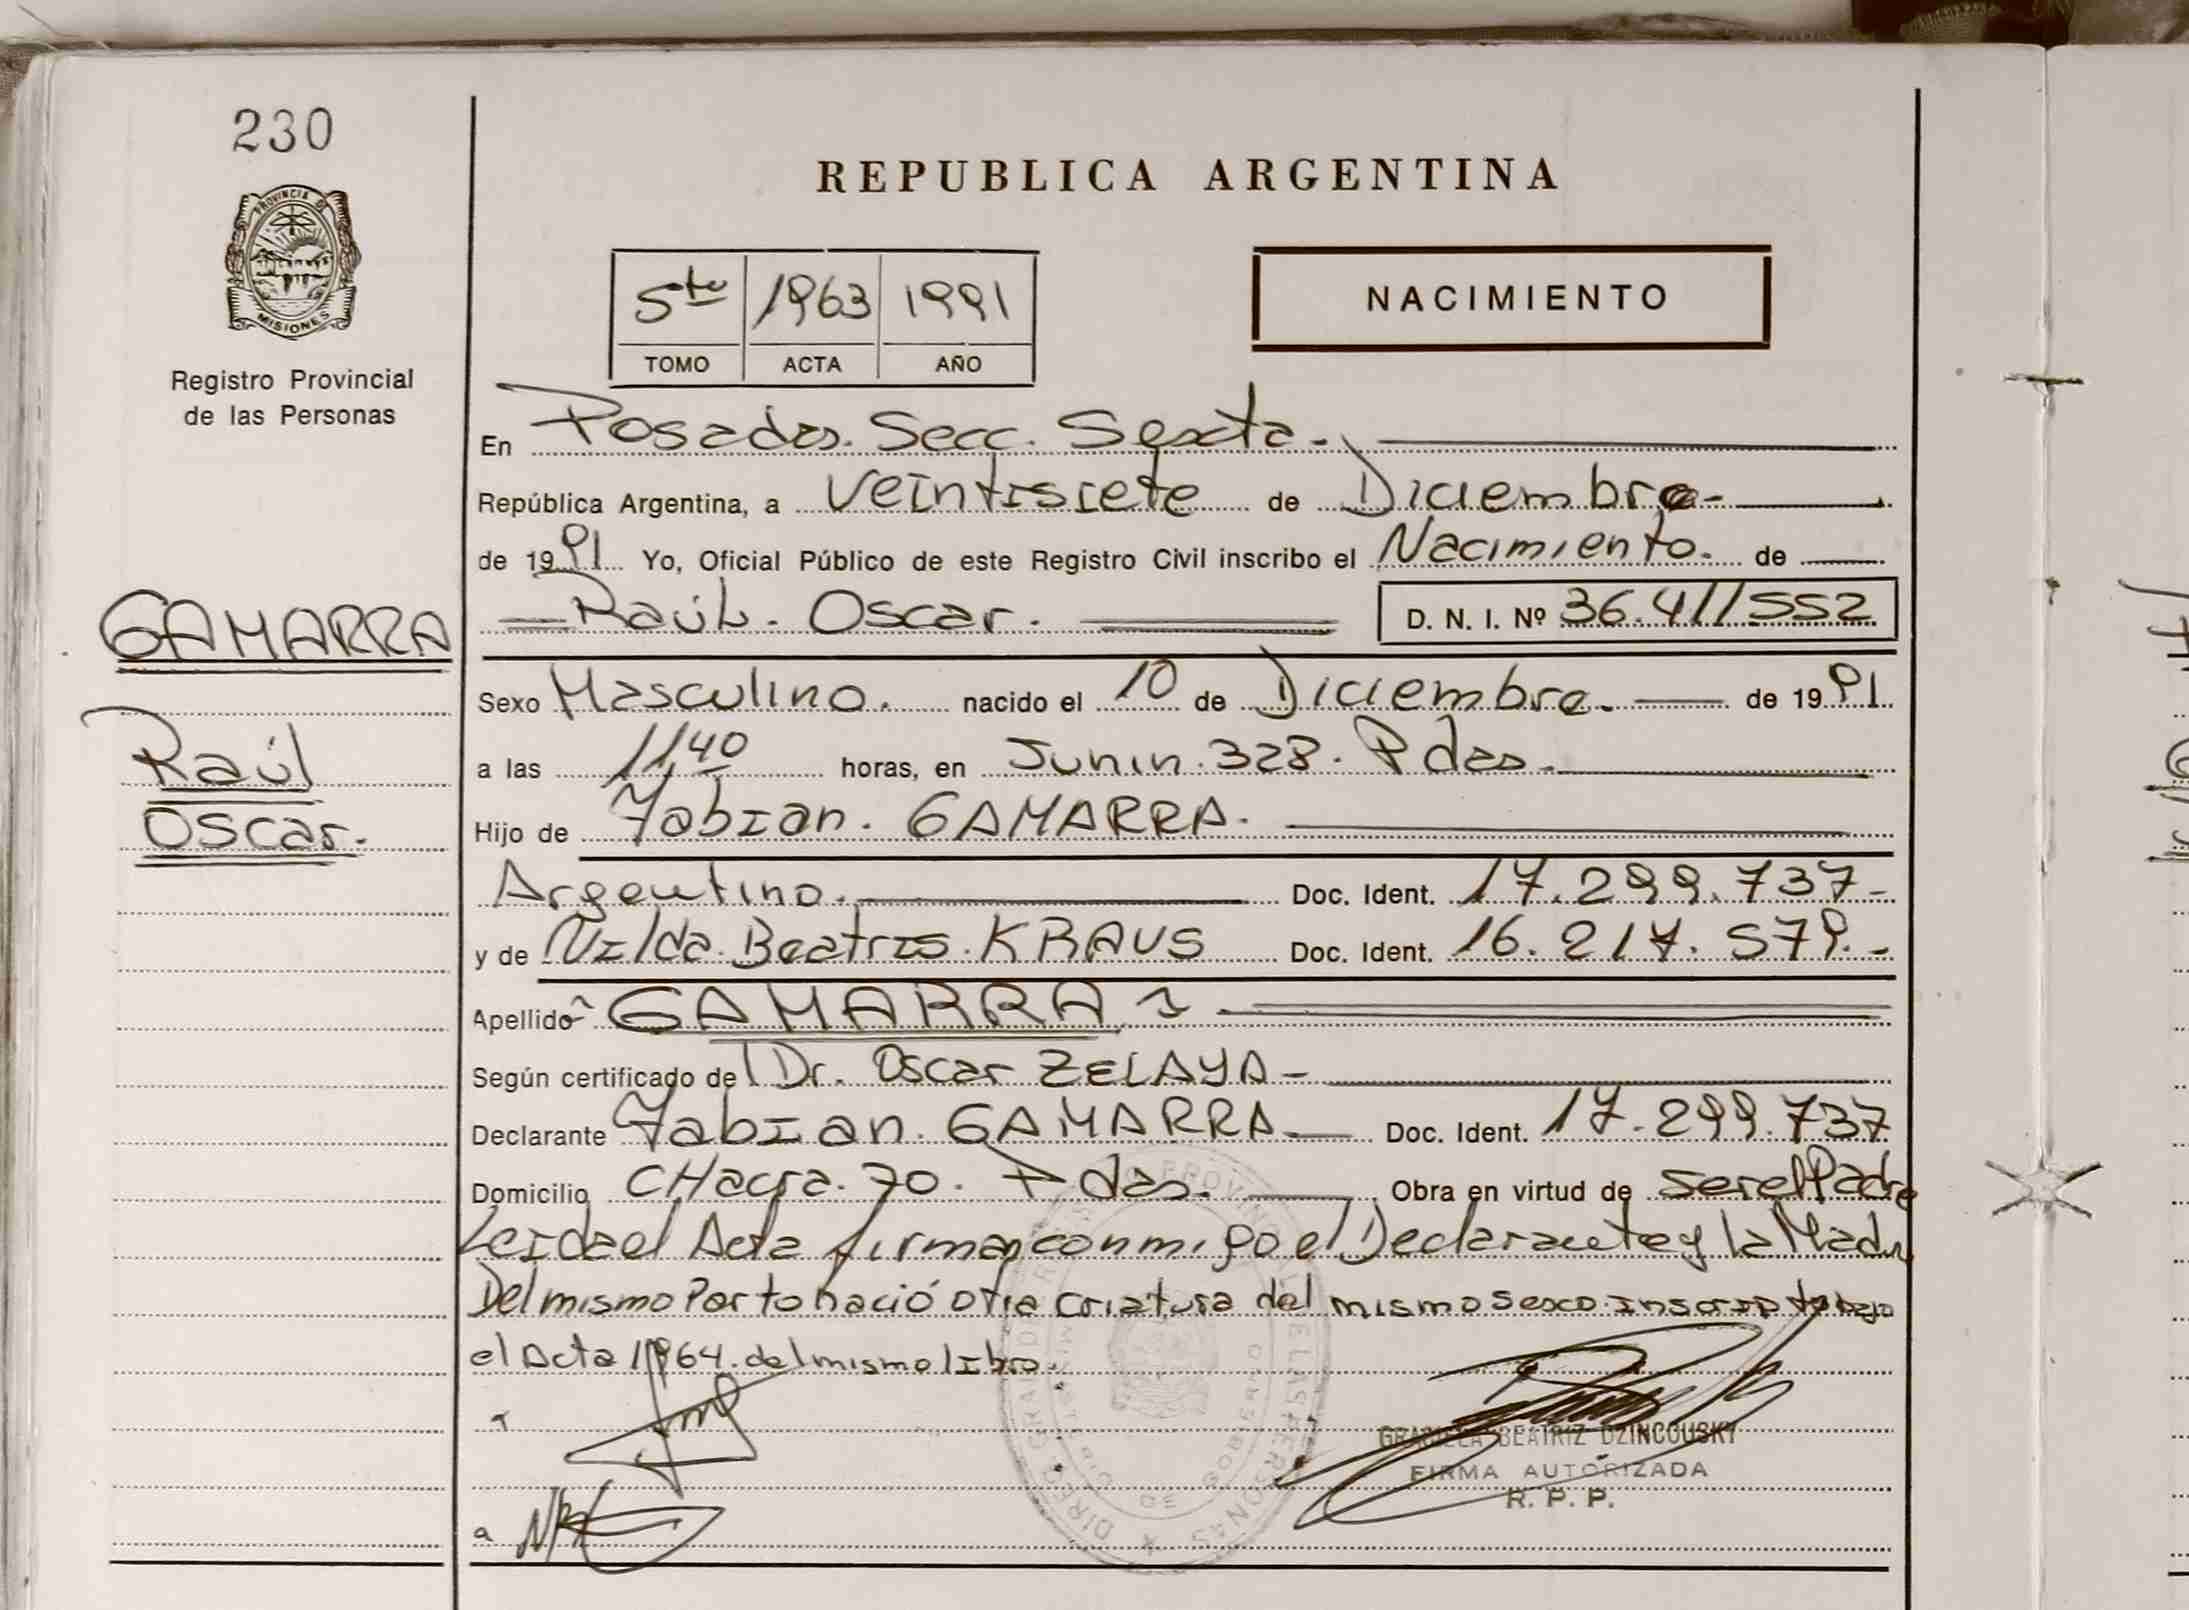 230
PROVINCIA DE
MISIONES
Registro Provincial
de las Personas
GAMARRA
Raúl
Oscar.
REPUBLICA ARGENTINA
5to 1963 1991
TOMO ACTA AÑO
NACIMIENTO
En Posadas. Secc. Sexta.
República Argentina, a Veintisiete de Diciembre
de 1991 Yo, Oficial Público de este Registro Civil inscribo el Nacimiento. de
Raúl. Oscar. D. N. I. Nº 36.411552
Sexo Masculino. nacido el 10 de Diciembre. de 1991.
a las 11,40 horas, en Junin. 328. Pdas.
Hijo de Fabian. GAMARRA.
Argentino. Doc. Ident. 17.299.737-
y de Nilda. Beatris. KRAUS Doc. Ident. 16.217.579.-
Apellido GAMARRA
Según certificado del Dr. Oscar ZELAYA-
Declarante Fabian. GAMARRA Doc. Ident. 17.299.737
Domicilio CHacra. 70. Pdas. Obra en virtud de ser el Padre
Leida el Acta firman conmigo el Declarante y la Madre
Del mismo Parto nació otra criatura del mismo sexo inscripto bajo
el Acta 1964. del mismo libro.
a
GRACIELA BEATRIZ DZINCOUSKY
FIRMA AUTORIZADA
R. P. P.